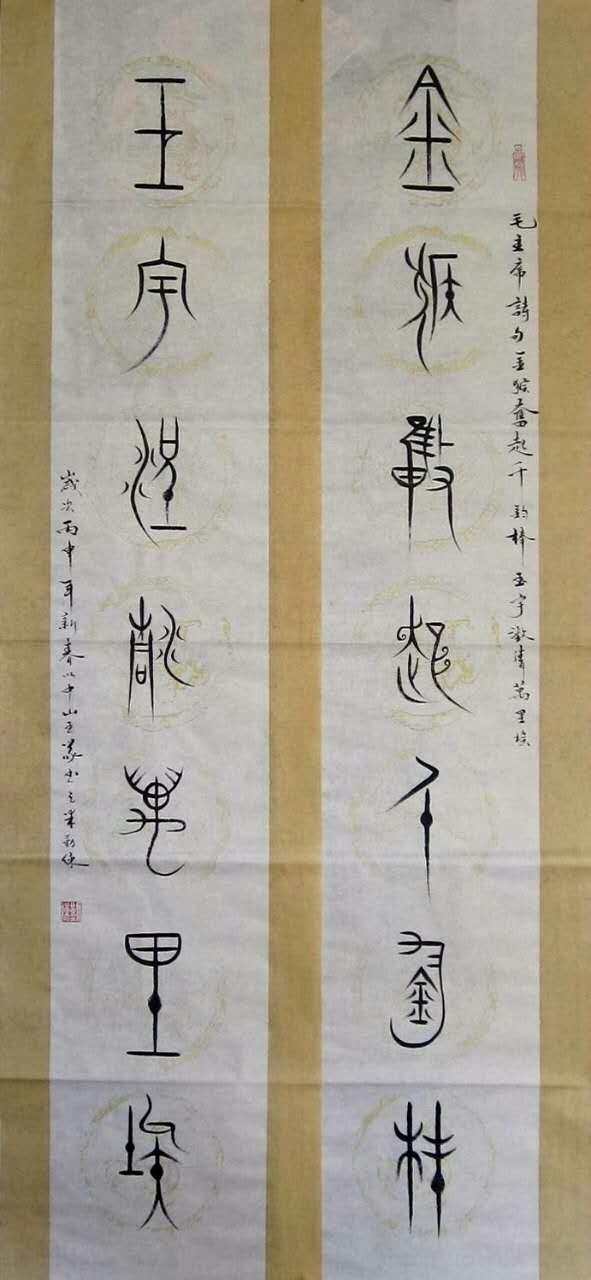 毛主席詩句金猴奮起千鈞棒玉宇澂清萬里埃
金猴奮起千鈞棒
玉宇澄清萬里埃
歲次丙申年新春以中山王篆書之